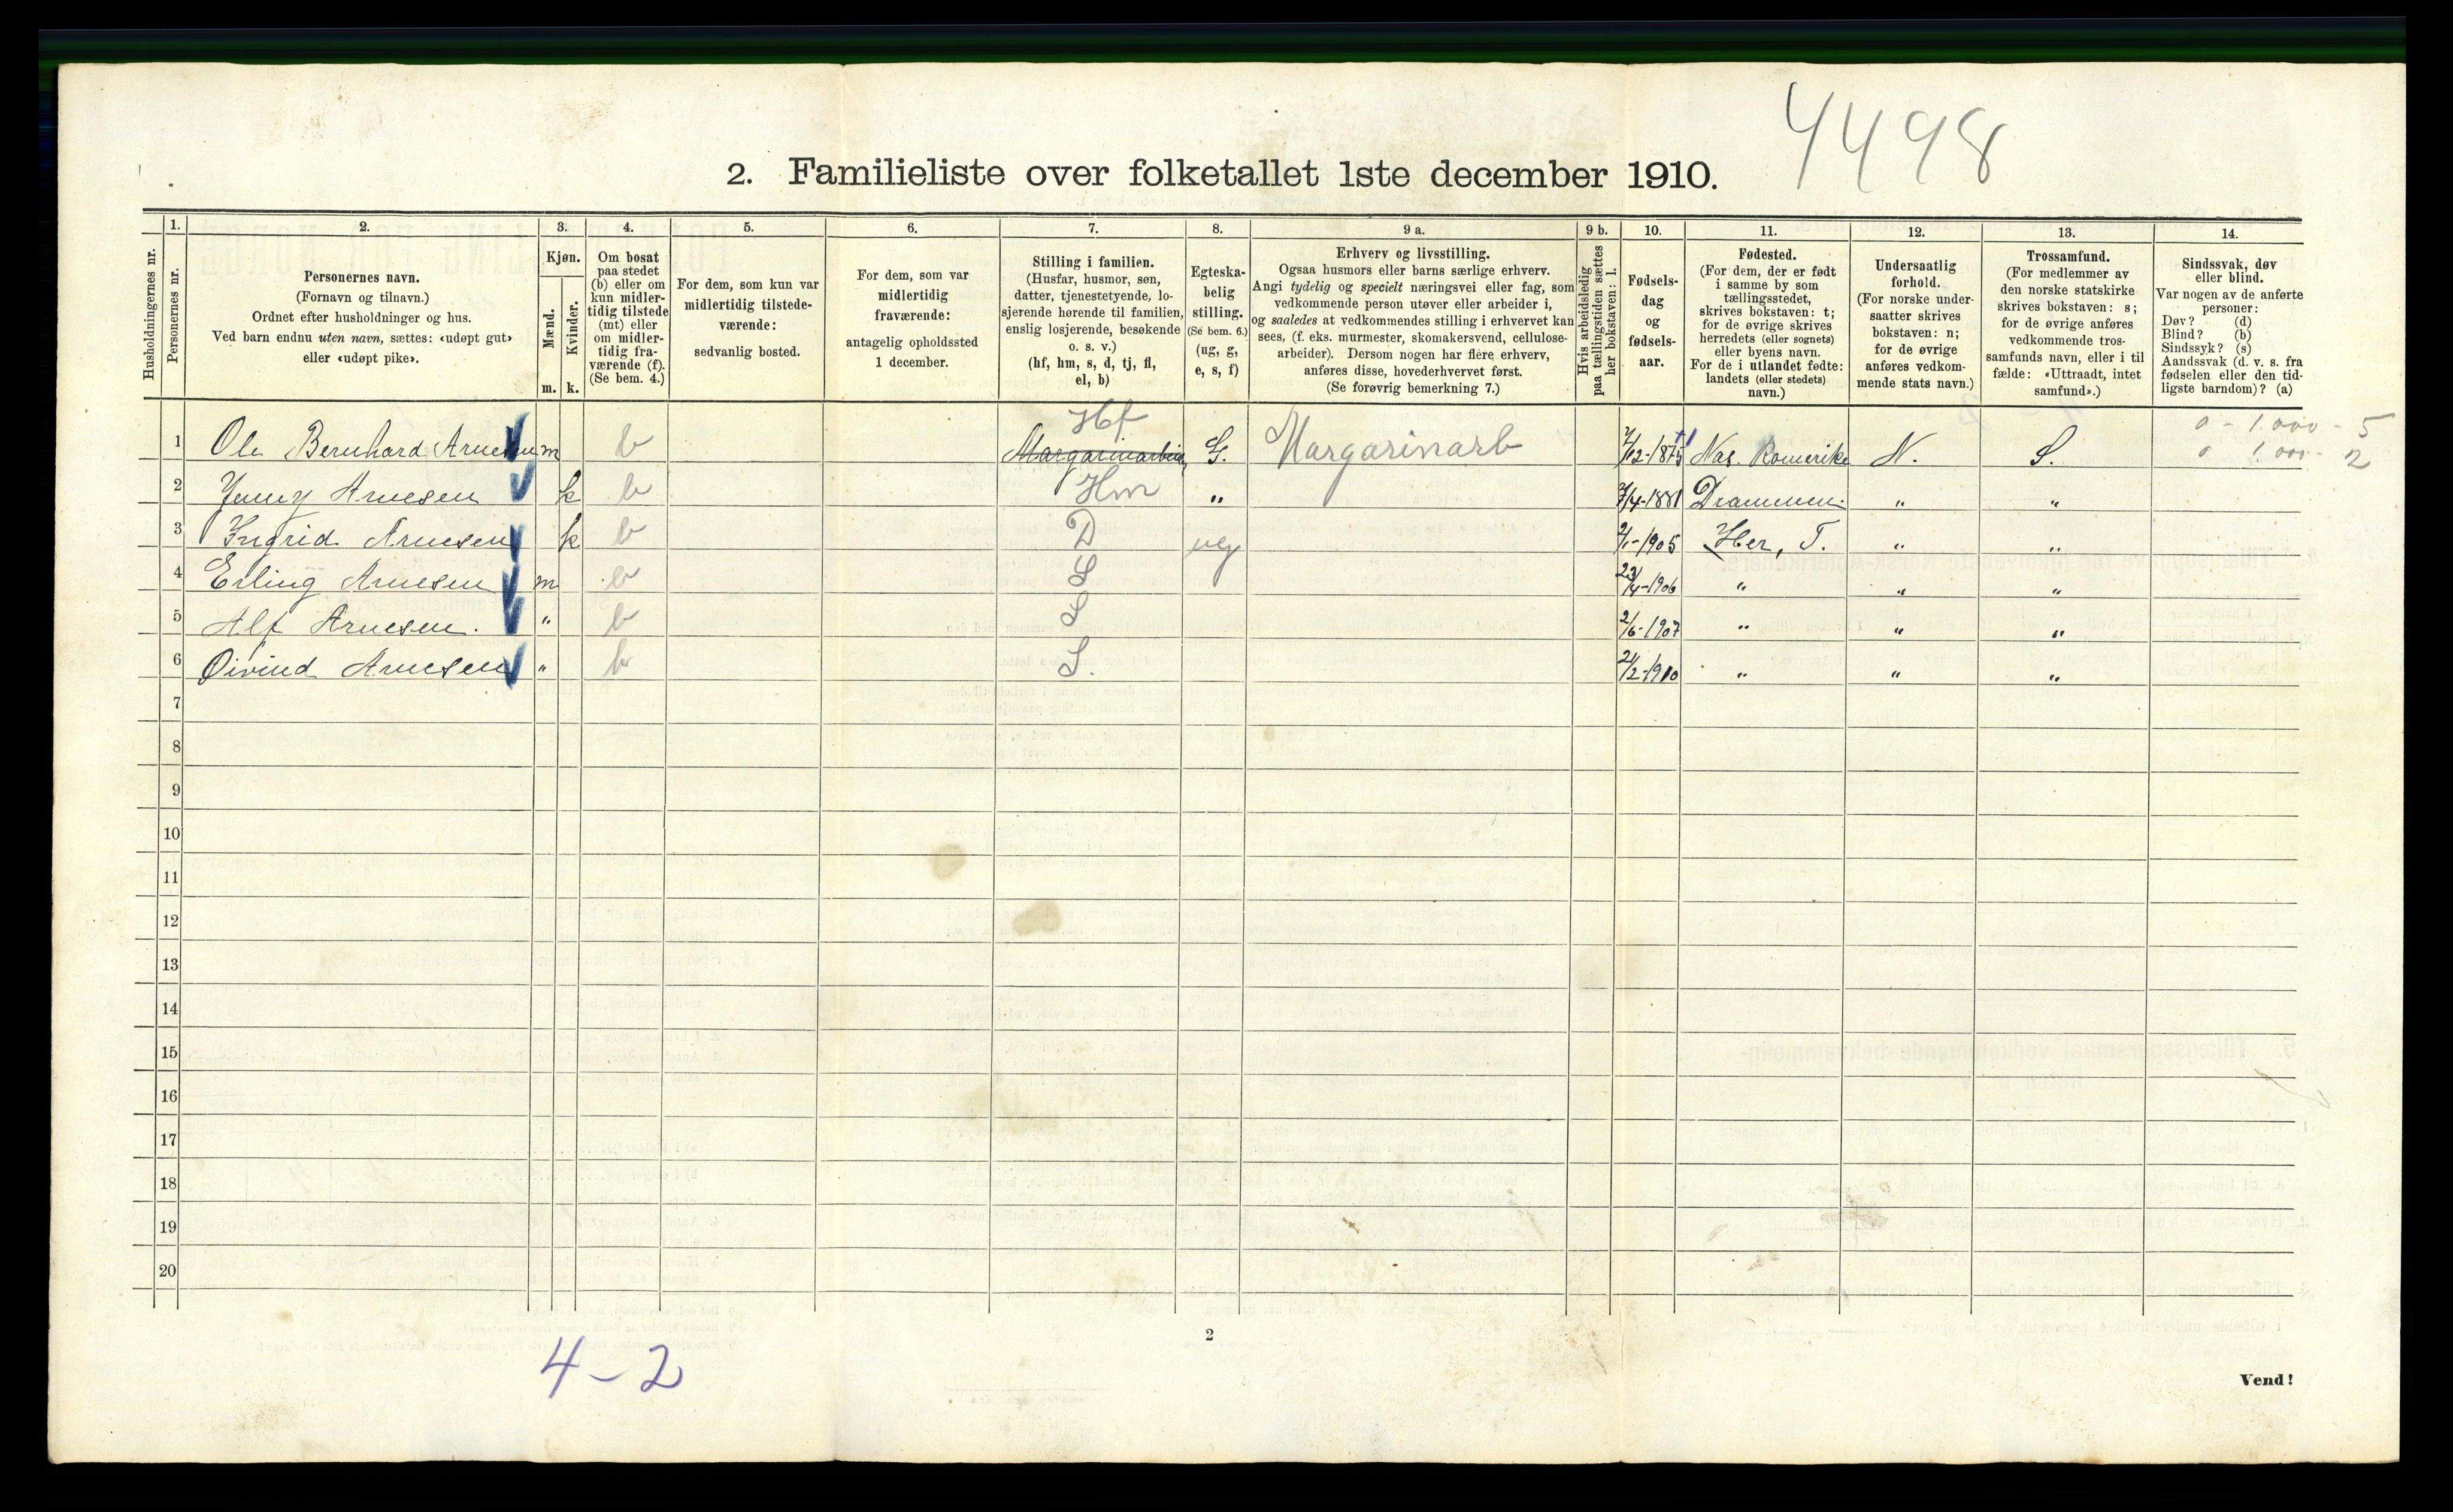 4498
2. Familieliste over folketallet 1ste december 1910.
1. 2. 3. 4. 5. 6. 7. 8. 9 a. 9 b. 10. 11. 12. 13. 14.
Husholdningernes nr.
Personernes nr.
Personernes navn.
(Fornavn og tilnavn.)
Ordnet efter husholdninger og hus.
Ved barn endnu uten navn, sættes: «udøpt gut»
eller «udøpt pike».
Kjøn.
Mænd.
m.
Kvinder.
k.
Om bosat
paa stedet
(b) eller om
kun midler-
tidig tilstede
(mt) eller
om midler-
tidig fra-
værende (f).
(Se bem. 4.)
For dem, som kun var
midlertidig tilstede-
værende:
sedvanlig bosted.
For dem, som var
midlertidig
fraværende:
antagelig opholdssted
1 december.
Stilling i familien.
(Husfar, husmor, søn,
datter, tjenestetyende, lo-
sjerende hørende til familien,
enslig losjerende, besøkende
o. s. v.)
(hf, hm, s, d, tj, fl,
el, b)
Egteska-
belig
stilling.
(Se bem. 6.)
(ug, g,
e, s, f)
Erhverv og livsstilling.
Ogsaa husmors eller barns særlige erhverv.
Angi tydelig og specielt næringsvei eller fag, som
vedkommende person utøver eller arbeider i,
og saaledes at vedkommendes stilling i erhvervet kan
sees, (f. eks. murmester, skomakersvend, cellulose-
arbeider). Dersom nogen har flere erhverv,
anføres disse, hovederhvervet først.
(Se forøvrig bemerkning 7.)
Hvis arbeidsledig
paa tællingstiden sættes
her bokstaven: l.
Fødsels-
dag
og
fødsels-
aar.
Fødested.
(For dem, der er født
i samme by som
tællingsstedet,
skrives bokstaven: t;
for de øvrige skrives
herredets (eller sognets)
eller byens navn.
For de i utlandet fødte:
landets (eller stedets)
navn.)
Undersaatlig
forhold.
(For norske under-
saatter skrives
bokstaven: n;
for de øvrige
anføres vedkom-
mende stats navn.)
Trossamfund.
(For medlemmer av
den norske statskirke
skrives bokstaven: s;
for de øvrige anføres
vedkommende tros-
samfunds navn, eller i til
fælde: «Uttraadt, intet
samfund».)
Sindssvak, døv
eller blind.
Var nogen av de anførte
personer:
Døv? (d)
Blind? (b)
Sindssyk? (s)
Aandssvak (d. v. s. fra
fødselen eller den tid-
ligste barndom)? (a)
Hf
0 - 1.000 - 5
0 1.000 - 2
1 Ole Bernhard Arnesen m b Margarinarbeid G. Margarinarb 7/12-1875 Nas. Romerike N. S.
2 Jenny Arnesen k b Hm " 7/4-1881 Drammen " "
3 Ingrid Arnesen k b D ug 2/1-1905 Her, T. " "
4 Erling Arnesen m b S 23/4-1906 " " "
5 Alf Arnesen. " b S 2/6-1907 " " "
6 Øivind Arnesen " b S. 21/2-1910 " " "
7
8
9
10
11
12
13
14
15
16
17
18
19
20
2
4-2
Vend!